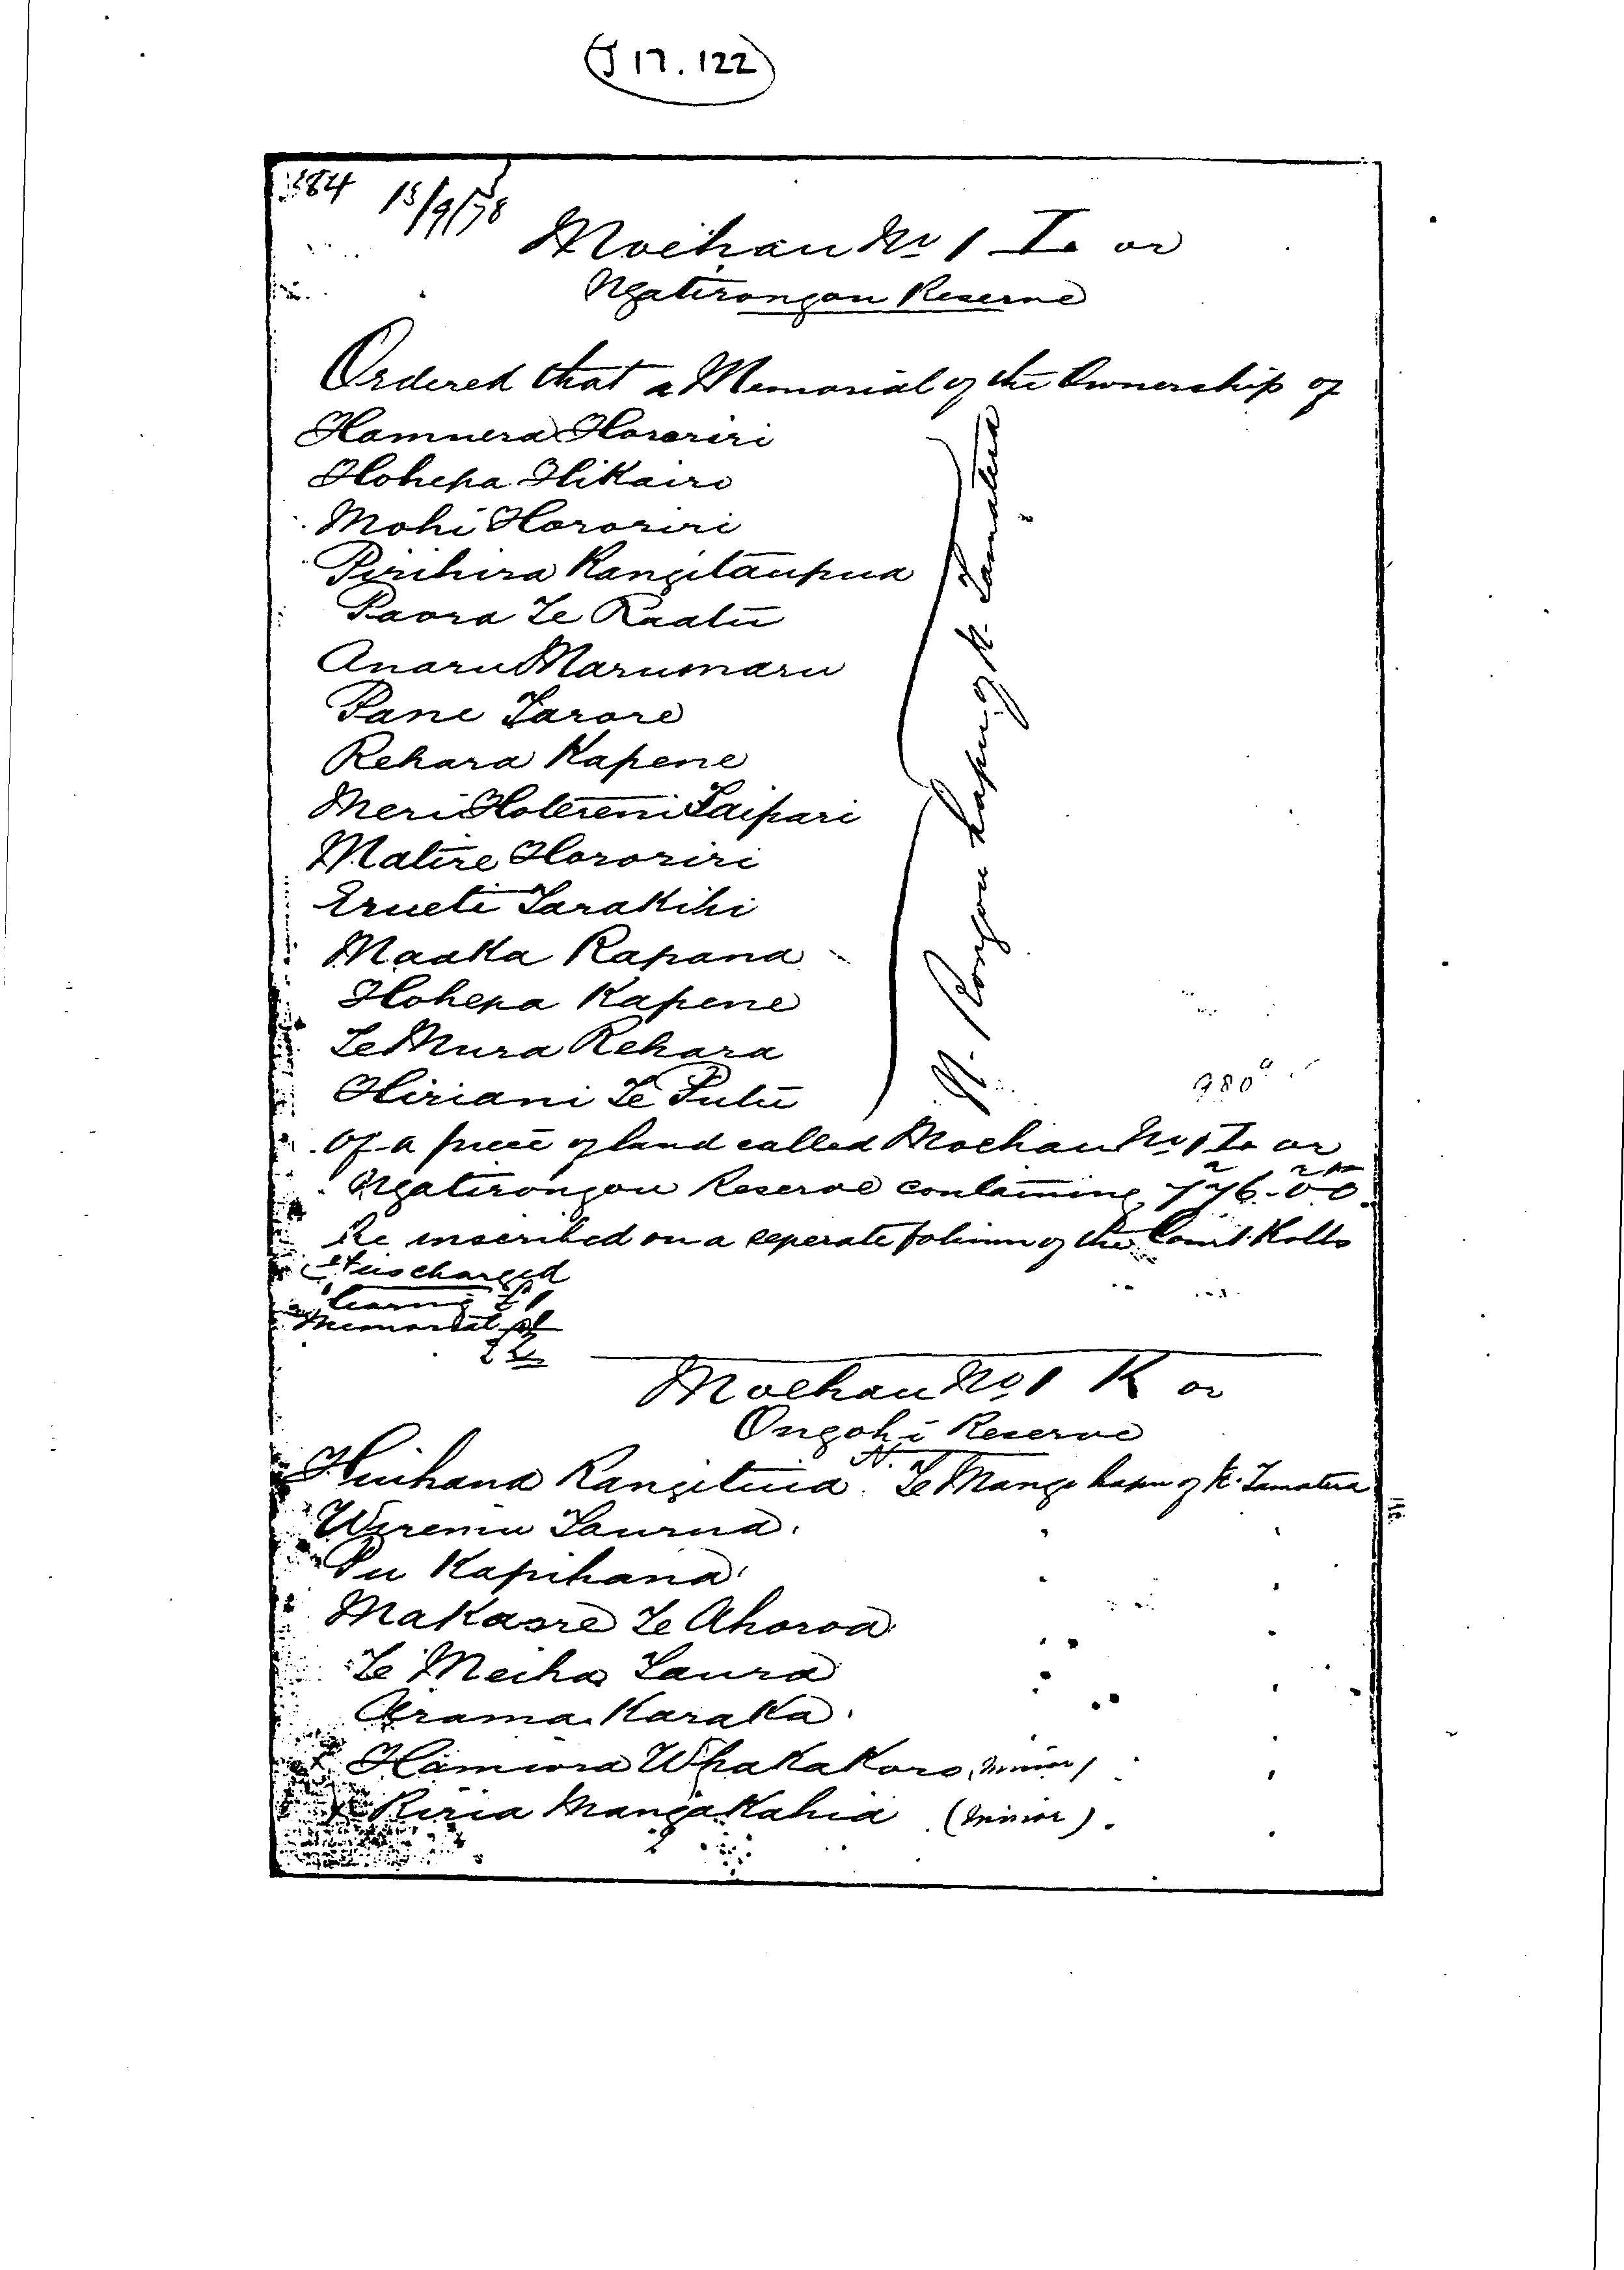 J 17. 122
384 18/9/78
Moehau No 1 I or
Ngatirongou Reserve
Ordered that a Memorial of the Ownership of
Hamuera Horoririri
Hohepa Hikairo
Mohi Hororiri
Pirihira Rangitaupua
Paora Te Raatu
Anaru Marumaru
Pane Tarore
Rehara Kapene
Meri Hotereni Taipari
Matire Hororiri
Erueti Tarakihi
Maaka Rapana
Hohepa Kapene
Te Mura Rehara
Hiriani Te Putu
N. Rongou hapu of N. Tamatera
980a
Of a piece of land called Moehau No 1 I or
Ngatirongou Reserve containing 776 - 0 - 0
be inscribed on a seperate folium of the Court Rolls
Fees charged
hearing £1
Memorial £1
£2
Moehau No 1 K or
Ongohi Reserve
Huihana Rangituia N. Te Mango hapu of N. Tamatera
Wiremu Taurua
Pu Kapihana
Makaore Te Ahoroa
Te Meiha Taura
Arama Karaka
Hamiora Whakakoro, minor)
Riria Mangakahia (minor).